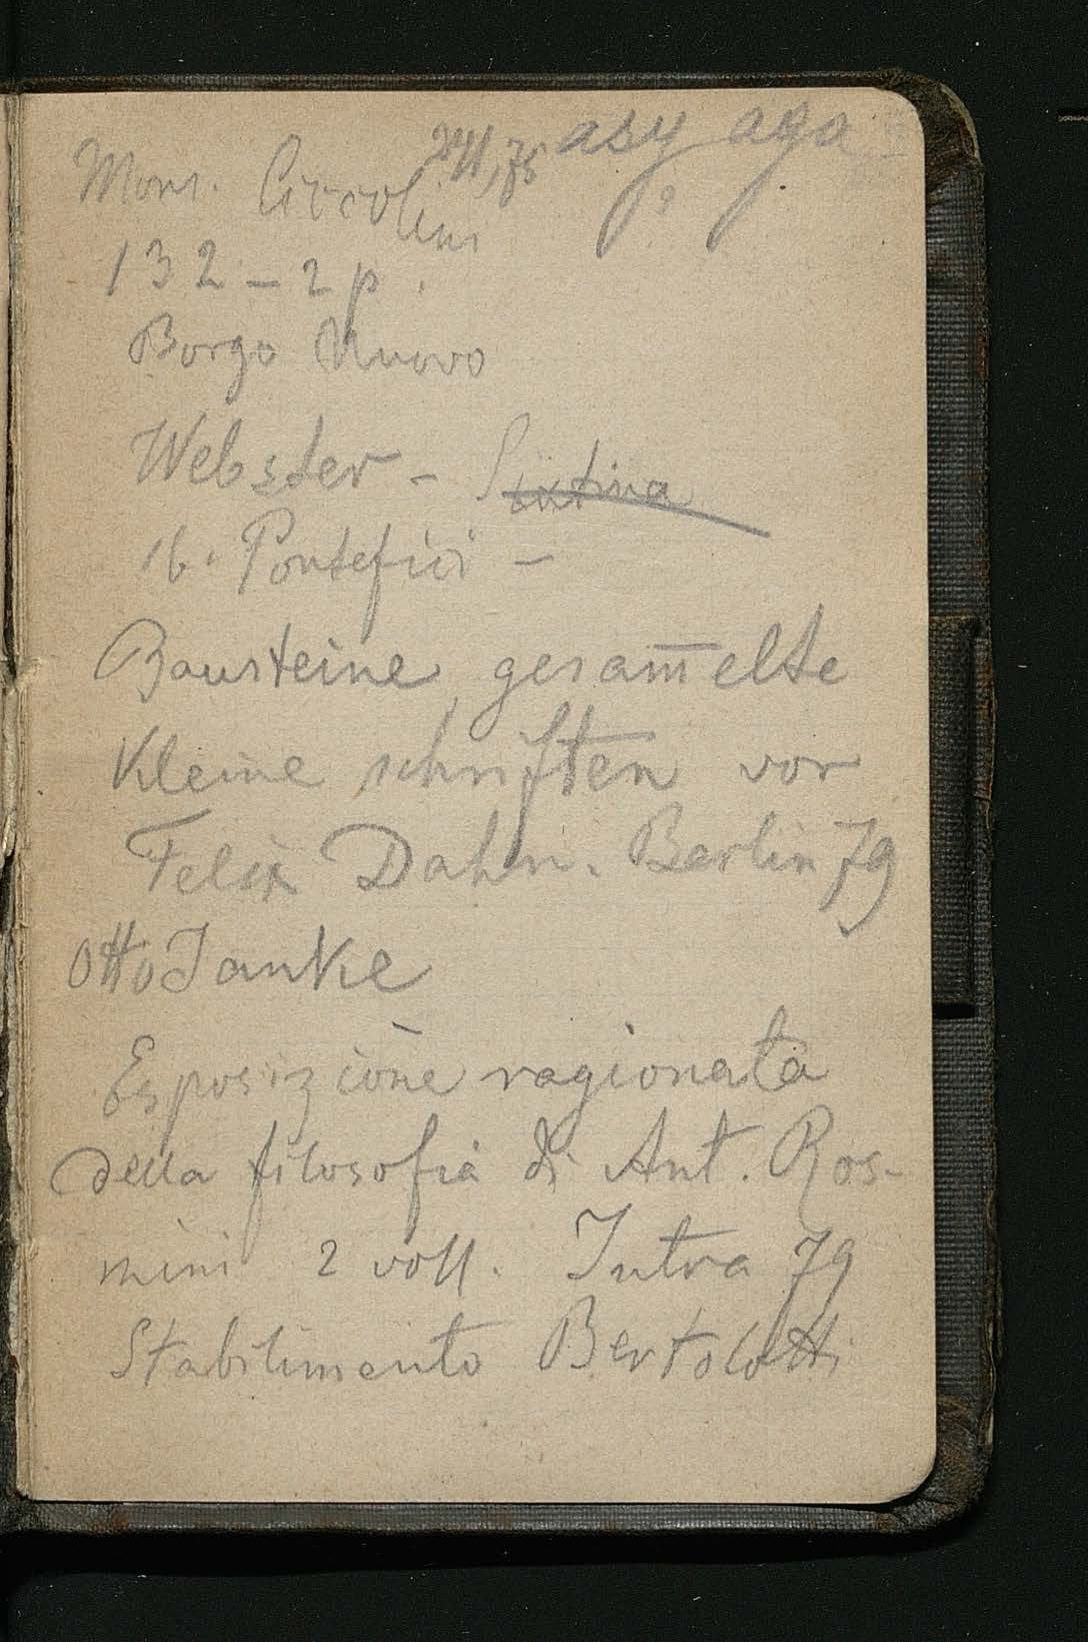 asy aga
Mons. Ciccolini
132 – 2 p.
Borgo Nuovo
Webster – Sixtina
16. Pontefici –
Bausteine, gesam̅elte
Kleine schriften von
Felix Dahn. Berlin 79
Otto Janke
Esposizione ragionata
della filosofia di Ant. Ros-
mini 2 voll. Intra 79
Stabilimento Bertolotti